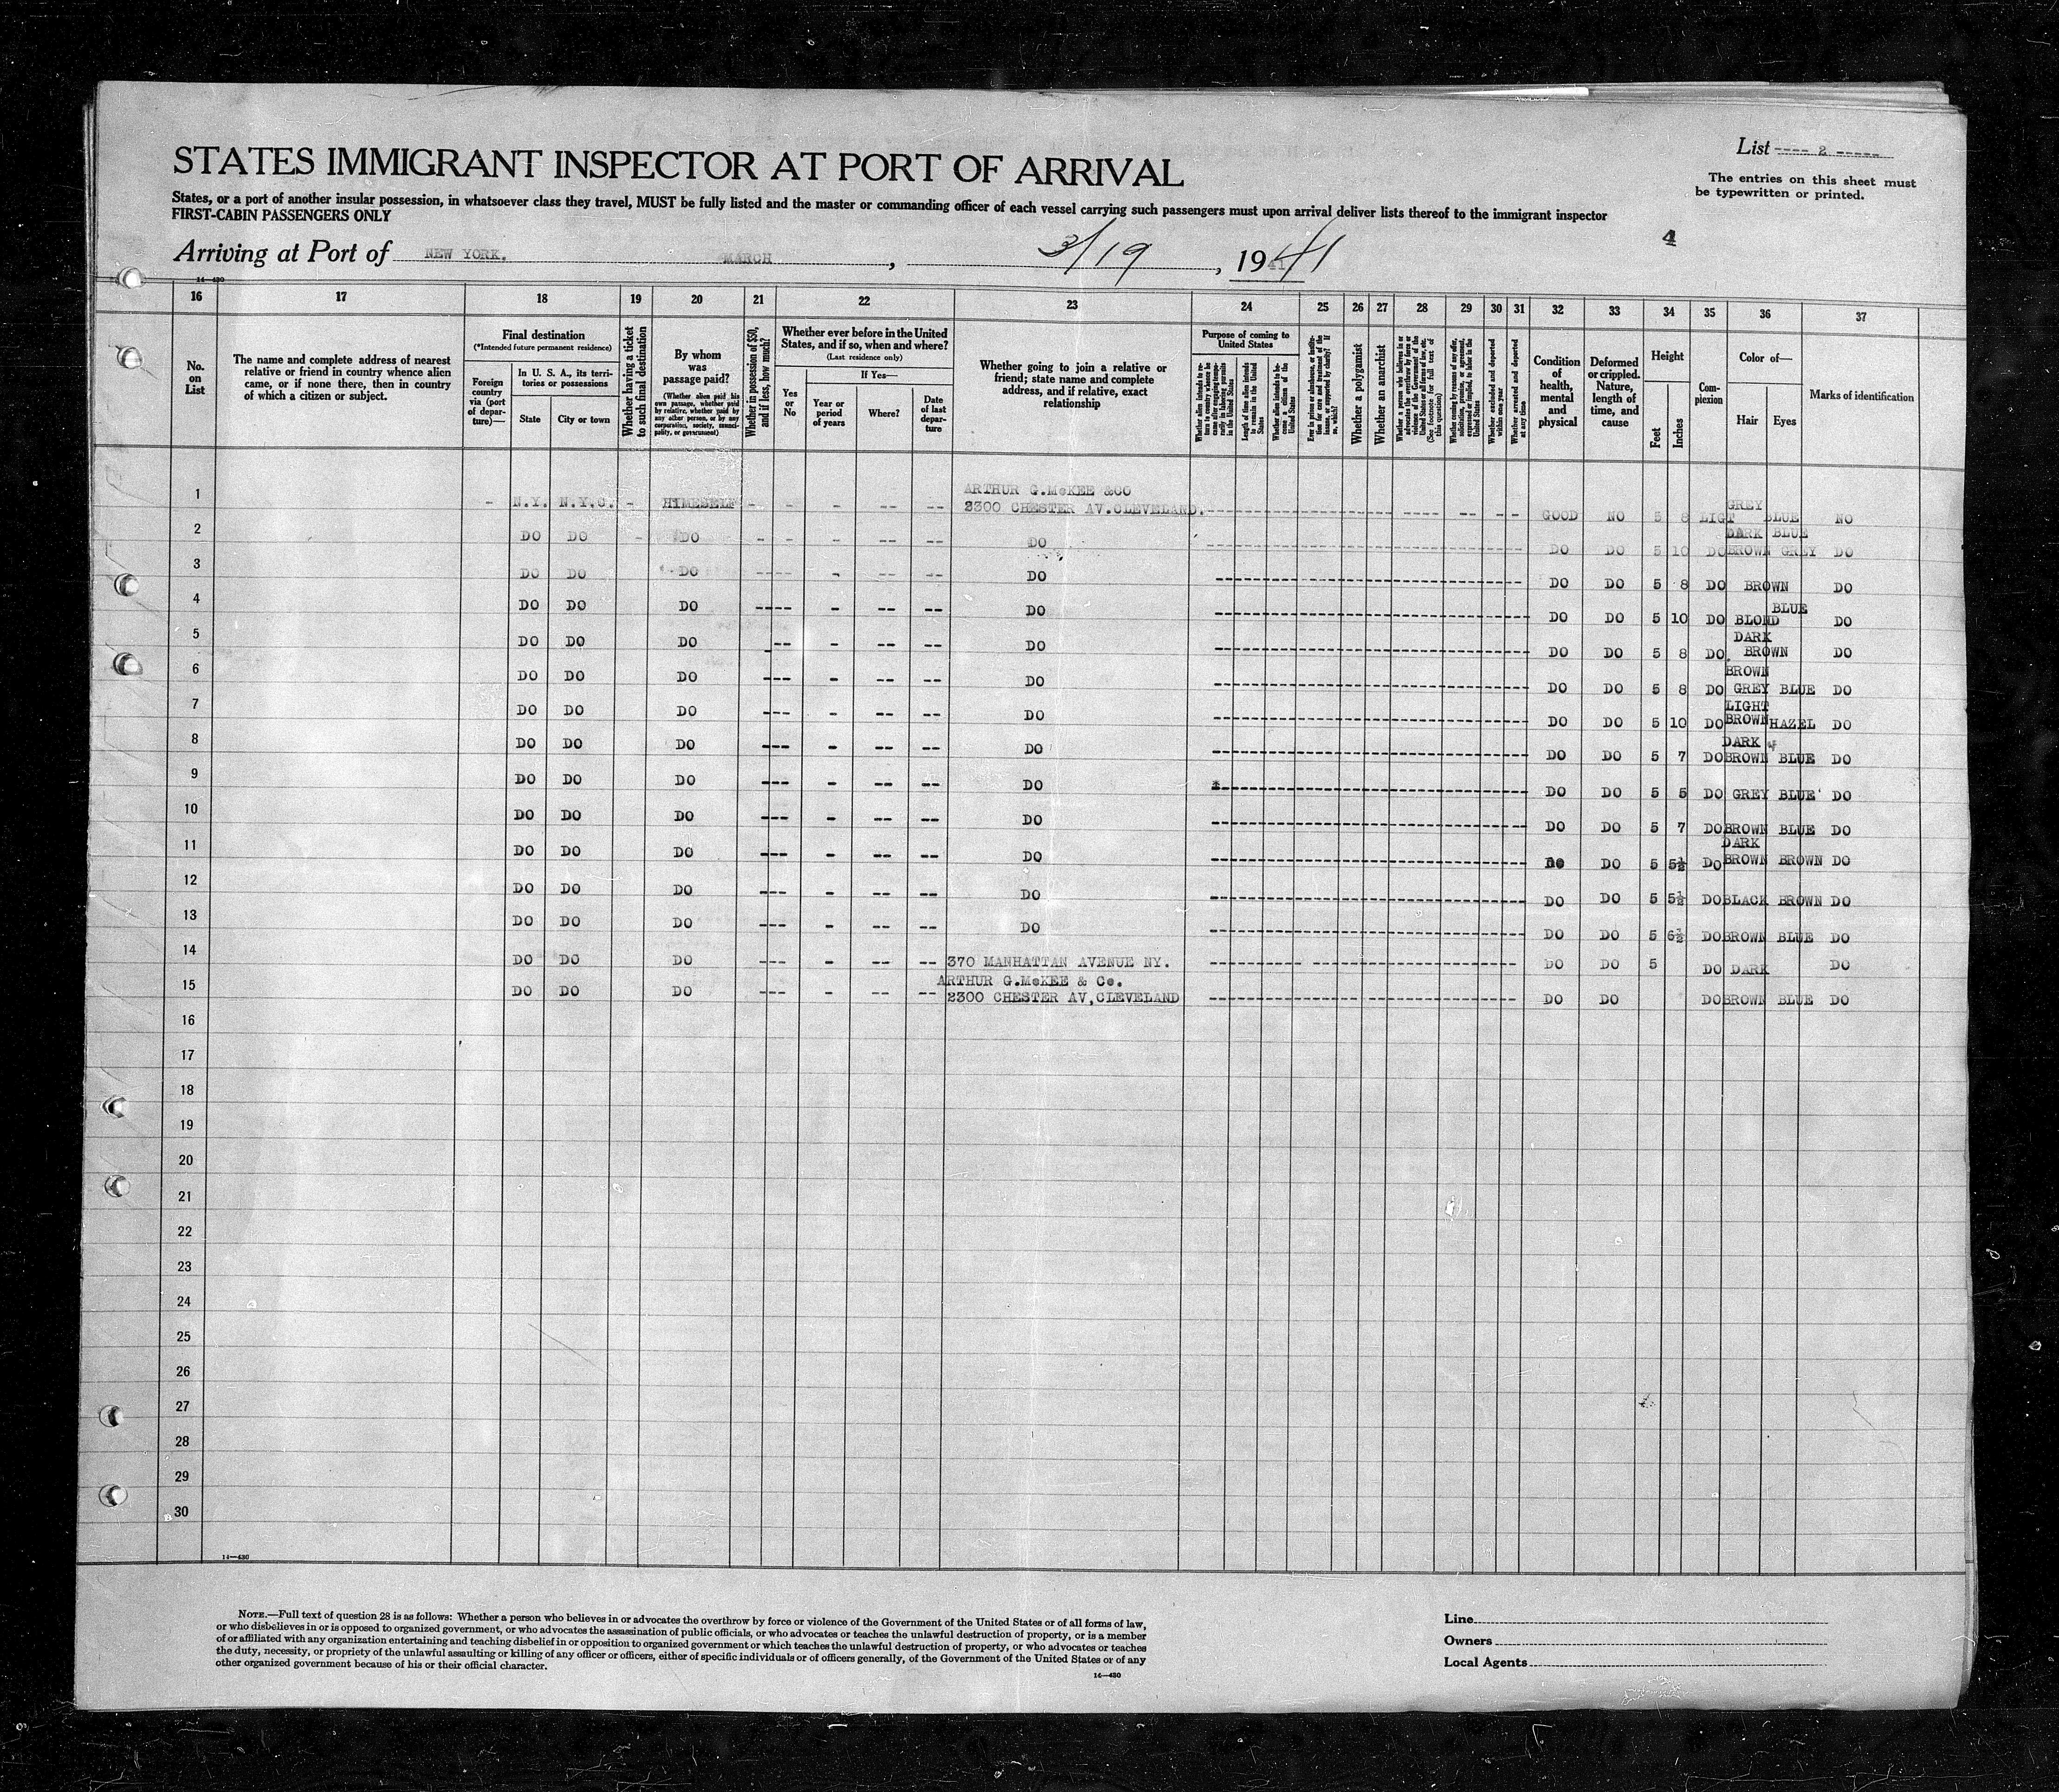 List ---- 2 -----
STATES IMMIGRANT INSPECTOR AT PORT OF ARRIVAL
The entries on this sheet must
be typewritten or printed.
States, or a port of another insular possession, in whatsoever class they travel, MUST be fully listed and the master or commanding officer of each vessel carrying such passengers must upon arrival deliver lists thereof to the immigrant inspector
FIRST-CABIN PASSENGERS ONLY
4
Arriving at Port of NEW YORK. MARCH , 3/19 , 1941
14—430
16 17 18 19 20 21 22 23 24 25 26 27 28 29 30 31 32 33 34 35 36 37
No. on List
The name and complete address of nearest relative or friend in country whence alien came, or if none there, then in country of which a citizen or subject.
Final destination
(*Intended future permanent residence)
Foreign country via (port of departure)—
In U. S. A., its territories or possessions
State
City or town
Whether having a ticket to such final destination
By whom was passage paid?
(Whether alien paid his own passage, whether paid by relative, whether paid by any other person, or by any corporation, society, municipality, or government)
Whether in possession of $50, and if less, how much?
Whether ever before in the United States, and if so, when and where?
(Last residence only)
Yes or No
If Yes—
Year or period of years
Where?
Date of last departure
Whether going to join a relative or friend; state name and complete address, and if relative, exact relationship
Purpose of coming to United States
Length of time alien intends to remain in the United States
Whether alien intends to become a citizen of the United States
Whether a polygamist
Whether an anarchist
Whether excluded and deported within one year
Whether arrested and deported at any time
Condition of health, mental and physical
Deformed or crippled. Nature, length of time, and cause
Height
Feet
Inches
Complexion
Color of—
Hair
Eyes
Marks of identification
ARTHUR G.McKEE &CO
1 - N.Y. N.Y.C. - HIMESELF - - - -- -- 2300 CHESTER AV.CLEVELAND. GOOD NO 5 8 LIGT GREY BLUE NO
2 DO DO - DO - - - -- -- DO DO DO 5 10 DO DARK BROWN BLUE GREY DO
3 DO DO DO ---- - -- -- DO DO DO 5 8 DO BROWN DO
4 DO DO DO ---- - -- -- DO DO DO 5 10 DO BLOND BLUE DO
5 DO DO DO -- - -- -- DO DO DO 5 8 DO DARK BROWN DO
6 DO DO DO --- - -- -- DO DO DO 5 8 DO BROWN GREY BLUE DO
7 DO DO DO --- - -- -- DO DO DO 5 10 DO LIGHT BROWN HAZEL DO
8 DO DO DO --- - -- -- DO DO DO 5 7 DO DARK BROWN BLUE DO
9 DO DO DO --- - -- -- DO DO DO 5 5 DO GREY BLUE DO
10 DO DO DO --- - -- -- DO DO DO 5 7 DO BROWN BLUE DO
11 DO DO DO --- - -- -- DO DO DO 5 5½ DO DARK BROWN BROWN DO
12 DO DO DO --- - -- -- DO DO DO 5 5½ DO BLACK BROWN DO
13 DO DO DO --- - -- -- DO DO DO 5 6½ DO BROWN BLUE DO
14 DO DO DO --- - -- -- 370 MANHATTAN AVENUE NY. DO DO 5 DO DARK DO
ARTHUR G.McKEE & Co.
15 DO DO DO --- - -- -- 2300 CHESTER AV,CLEVELAND DO DO DO BROWN BLUE DO
16
17
18
19
20
21
22
23
24
25
26
27
28
29
30
14—430
NOTE.—Full text of question 28 is as follows: Whether a person who believes in or advocates the overthrow by force or violence of the Government of the United States or of all forms of law,
or who disbelieves in or is opposed to organized government, or who advocates the assassination of public officials, or who advocates or teaches the unlawful destruction of property, or is a member
of or affiliated with any organization entertaining and teaching disbelief in or opposition to organized government or which teaches the unlawful destruction of property, or who advocates or teaches
the duty, necessity, or propriety of the unlawful assaulting or killing of any officer or officers, either of specific individuals or of officers generally, of the Government of the United States or of any
other organized government because of his or their official character.
14—430
Line
Owners
Local Agents